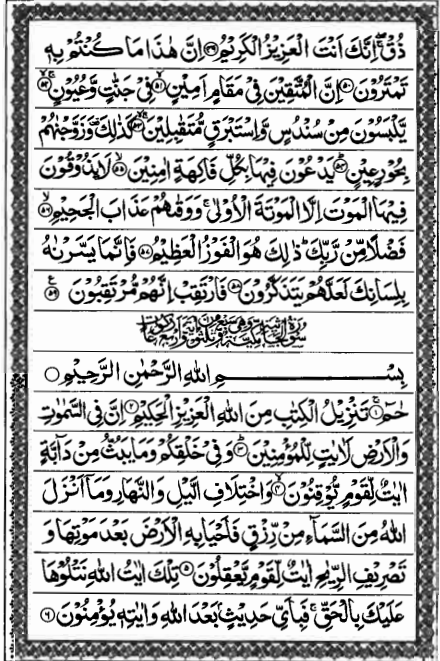 ذُقْ ۚ اِنَّكَ اَنْتَ الْعَزِيْزُ الْكَرِيْمُ ﴿۴۹﴾ اِنَّ هٰذَا مَا كُنْتُمْ بِهٖ
تَمْتَرُوْنَ ﴿۵۰﴾ اِنَّ الْمُتَّقِيْنَ فِيْ مَقَامٍ اَمِيْنٍ ﴿۵۱﴾ فِيْ جَنّٰتٍ وَّعُيُوْنٍ ﴿۵۲﴾
يَّلْبَسُوْنَ مِنْ سُنْدُسٍ وَّاِسْتَبْرَقٍ مُّتَقٰبِلِيْنَ ﴿۵۳﴾ كَذٰلِكَ ۫ وَزَوَّجْنٰهُمْ
بِحُوْرٍ عِيْنٍ ﴿۵۴﴾ يَدْعُوْنَ فِيْهَا بِكُلِّ فَاكِهَةٍ اٰمِنِيْنَ ﴿۵۵﴾ لَا يَذُوْقُوْنَ
فِيْهَا الْمَوْتَ اِلَّا الْمَوْتَةَ الْاُوْلٰى ۚ وَوَقٰىهُمْ عَذَابَ الْجَحِيْمِ ﴿۵۶﴾
فَضْلًا مِّنْ رَّبِّكَ ؕ ذٰلِكَ هُوَ الْفَوْزُ الْعَظِيْمُ ﴿۵۷﴾ فَاِنَّمَا يَسَّرْنٰهُ
بِلِسَانِكَ لَعَلَّهُمْ يَتَذَكَّرُوْنَ ﴿۵۸﴾ فَارْتَقِبْ اِنَّهُمْ مُّرْتَقِبُوْنَ ﴿۵۹﴾
بِسْمِ اللهِ الرَّحْمٰنِ الرَّحِيْمِ
حٰمٓ ﴿۱﴾ تَنْزِيْلُ الْكِتٰبِ مِنَ اللهِ الْعَزِيْزِ الْحَكِيْمِ ﴿۲﴾ اِنَّ فِي السَّمٰوٰتِ
وَالْاَرْضِ لَاٰيٰتٍ لِّلْمُؤْمِنِيْنَ ﴿۳﴾ وَفِيْ خَلْقِكُمْ وَمَا يَبُثُّ مِنْ دَآبَّةٍ
اٰيٰتٌ لِّقَوْمٍ يُّوْقِنُوْنَ ﴿۴﴾ وَاخْتِلَافِ الَّيْلِ وَالنَّهَارِ وَمَاۤ اَنْزَلَ
اللهُ مِنَ السَّمَآءِ مِنْ رِّزْقٍ فَاَحْيَا بِهِ الْاَرْضَ بَعْدَ مَوْتِهَا وَ
تَصْرِيْفِ الرِّيٰحِ اٰيٰتٌ لِّقَوْمٍ يَّعْقِلُوْنَ ﴿۵﴾ تِلْكَ اٰيٰتُ اللهِ نَتْلُوْهَا
عَلَيْكَ بِالْحَقِّ ۚ فَبِاَيِّ حَدِيْثٍۭ بَعْدَ اللهِ وَاٰيٰتِهٖ يُؤْمِنُوْنَ ﴿۶﴾